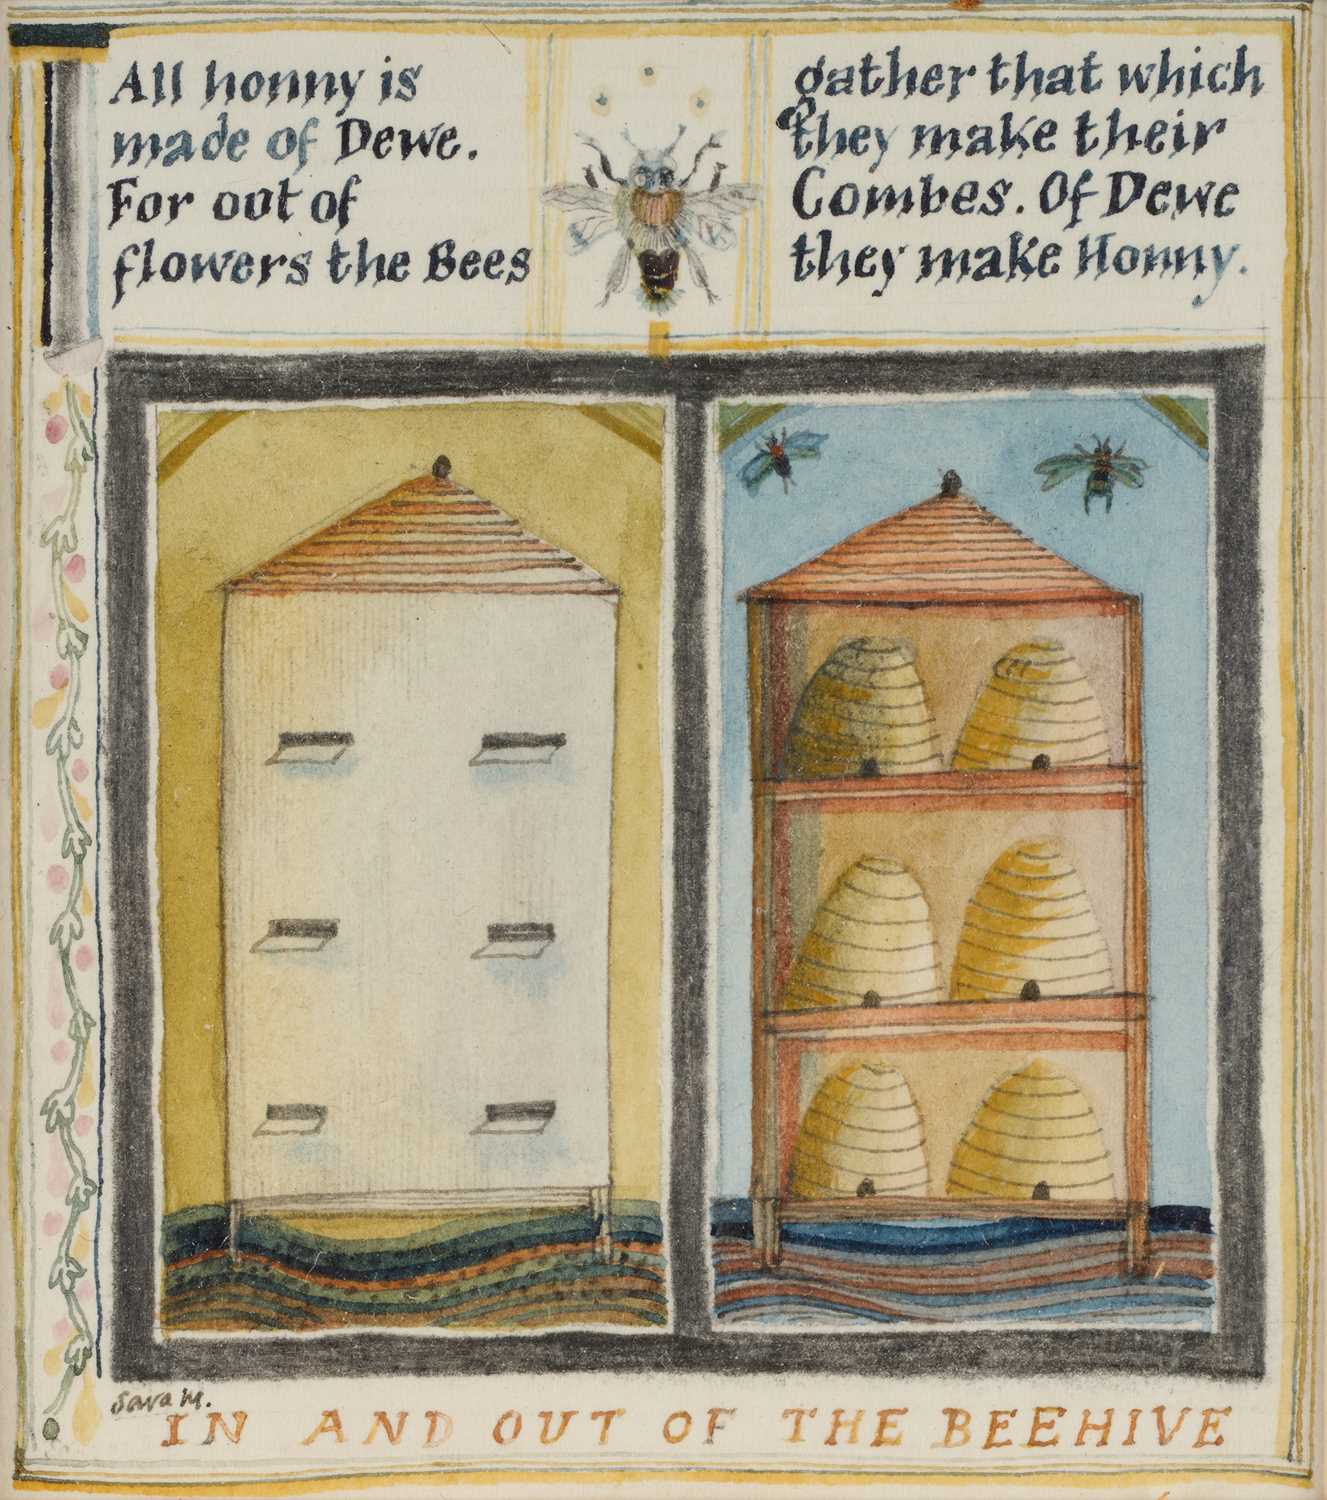 All honny is
made of Dewe.
For out of
flowers the Bees
gather that which
they make their
Combes. Of Dewe
they make Honny.
Sara M.
IN AND OUT OF THE BEEHIVE